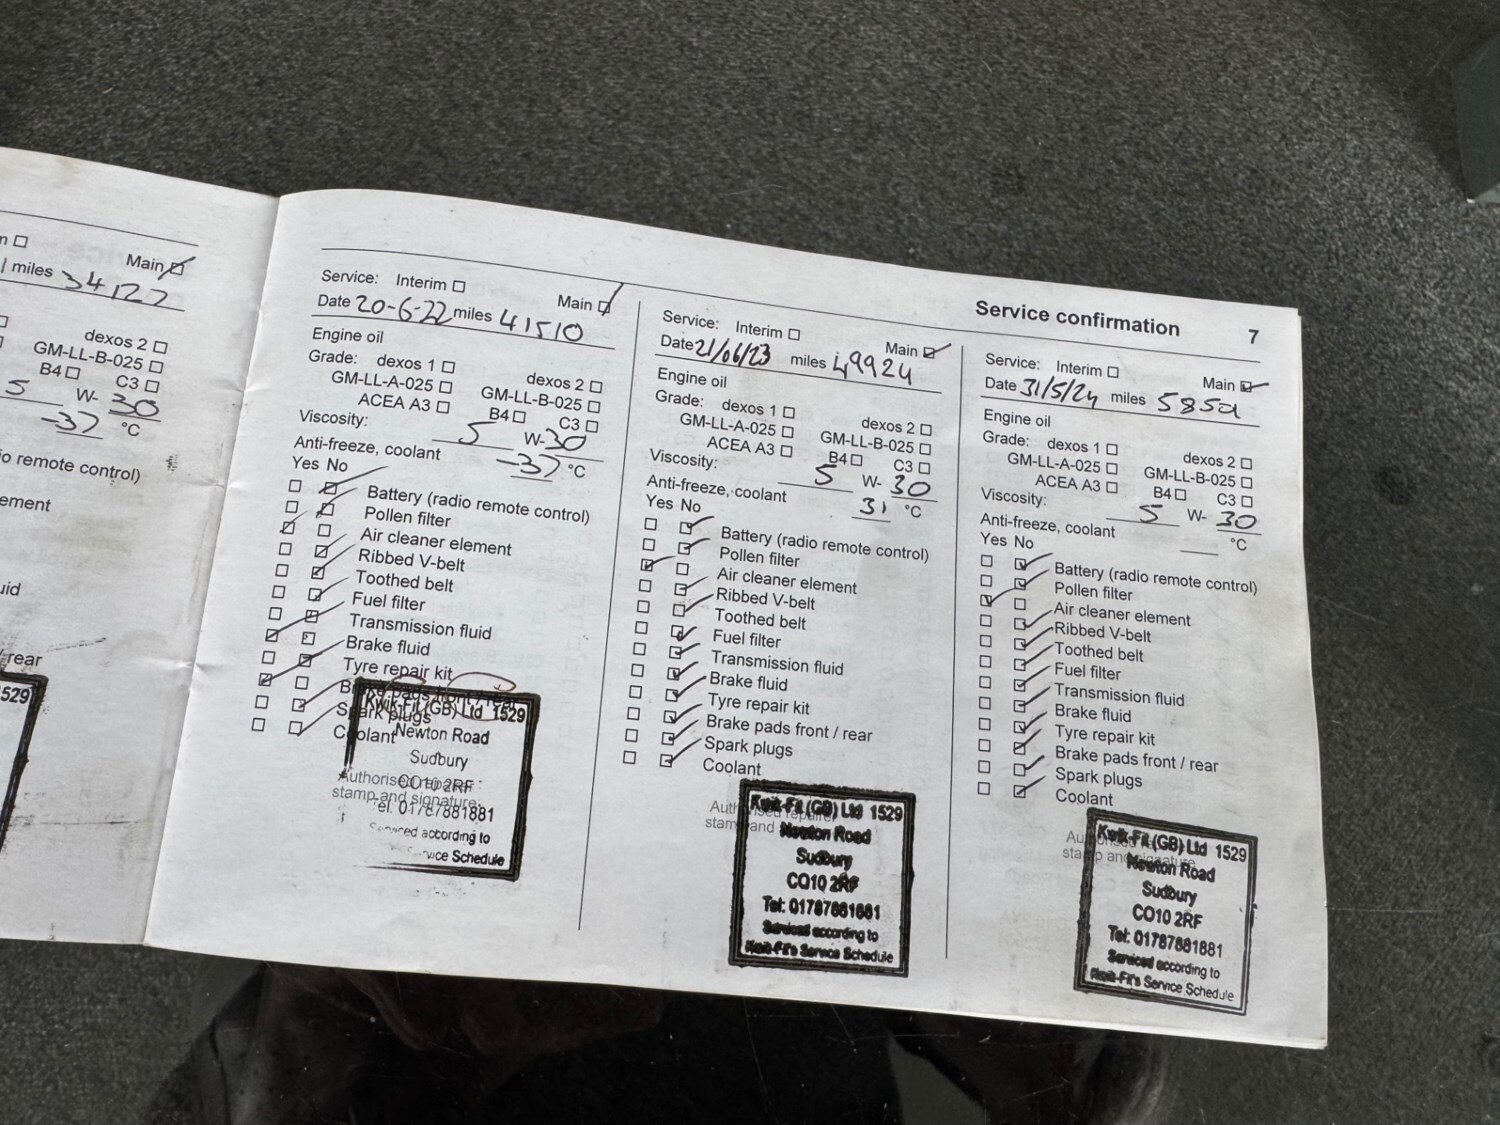 Main
miles 34127
dexos 2
GM-LL-B-025
B4 C3
5 W- 30
-37 °C
io remote control)
ement
uid
/ rear
1529
Service: Interim Main
Date 20-6-22 miles 41510
Engine oil
Grade: dexos 1 dexos 2
GM-LL-A-025 GM-LL-B-025
ACEA A3 B4 C3
Viscosity: 5 W- 30
Anti-freeze, coolant -37 °C
Yes No
Battery (radio remote control)
Pollen filter
Air cleaner element
Ribbed V-belt
Toothed belt
Fuel filter
Transmission fluid
Brake fluid
Tyre repair kit
Brake pads front / rear
Spark plugs
Coolant
Authorised repairer
stamp and signature
Kwik-Fit (GB) Ltd 1529
Newton Road
Sudbury
CO10 2RF
Tel: 01787881881
Serviced according to
Service Schedule
Service confirmation 7
Service: Interim Main
Date 21/06/23 miles 49924
Engine oil
Grade: dexos 1 dexos 2
GM-LL-A-025 GM-LL-B-025
ACEA A3 B4 C3
Viscosity: 5 W- 30
Anti-freeze, coolant 31 °C
Yes No
Battery (radio remote control)
Pollen filter
Air cleaner element
Ribbed V-belt
Toothed belt
Fuel filter
Transmission fluid
Brake fluid
Tyre repair kit
Brake pads front / rear
Spark plugs
Coolant
Authorised repairer
stamp and
Kwik-Fit (GB) Ltd 1529
Newton Road
Sudbury
CO10 2RF
Tel: 01787881881
Serviced according to
Kwik-Fit's Service Schedule
Service: Interim Main
Date 31/5/24 miles
Engine oil
Grade: dexos 1 dexos 2
GM-LL-A-025 GM-LL-B-025
ACEA A3 B4 C3
Viscosity: 5 W- 30
Anti-freeze, coolant °C
Yes No
Battery (radio remote control)
Pollen filter
Air cleaner element
Ribbed V-belt
Toothed belt
Fuel filter
Transmission fluid
Brake fluid
Tyre repair kit
Brake pads front / rear
Spark plugs
Coolant
stamp and signature
Kwik-Fit (GB) Ltd 1529
Newton Road
Sudbury
CO10 2RF
Tel: 01787881881
Serviced according to
Kwik-Fit's Service Schedule